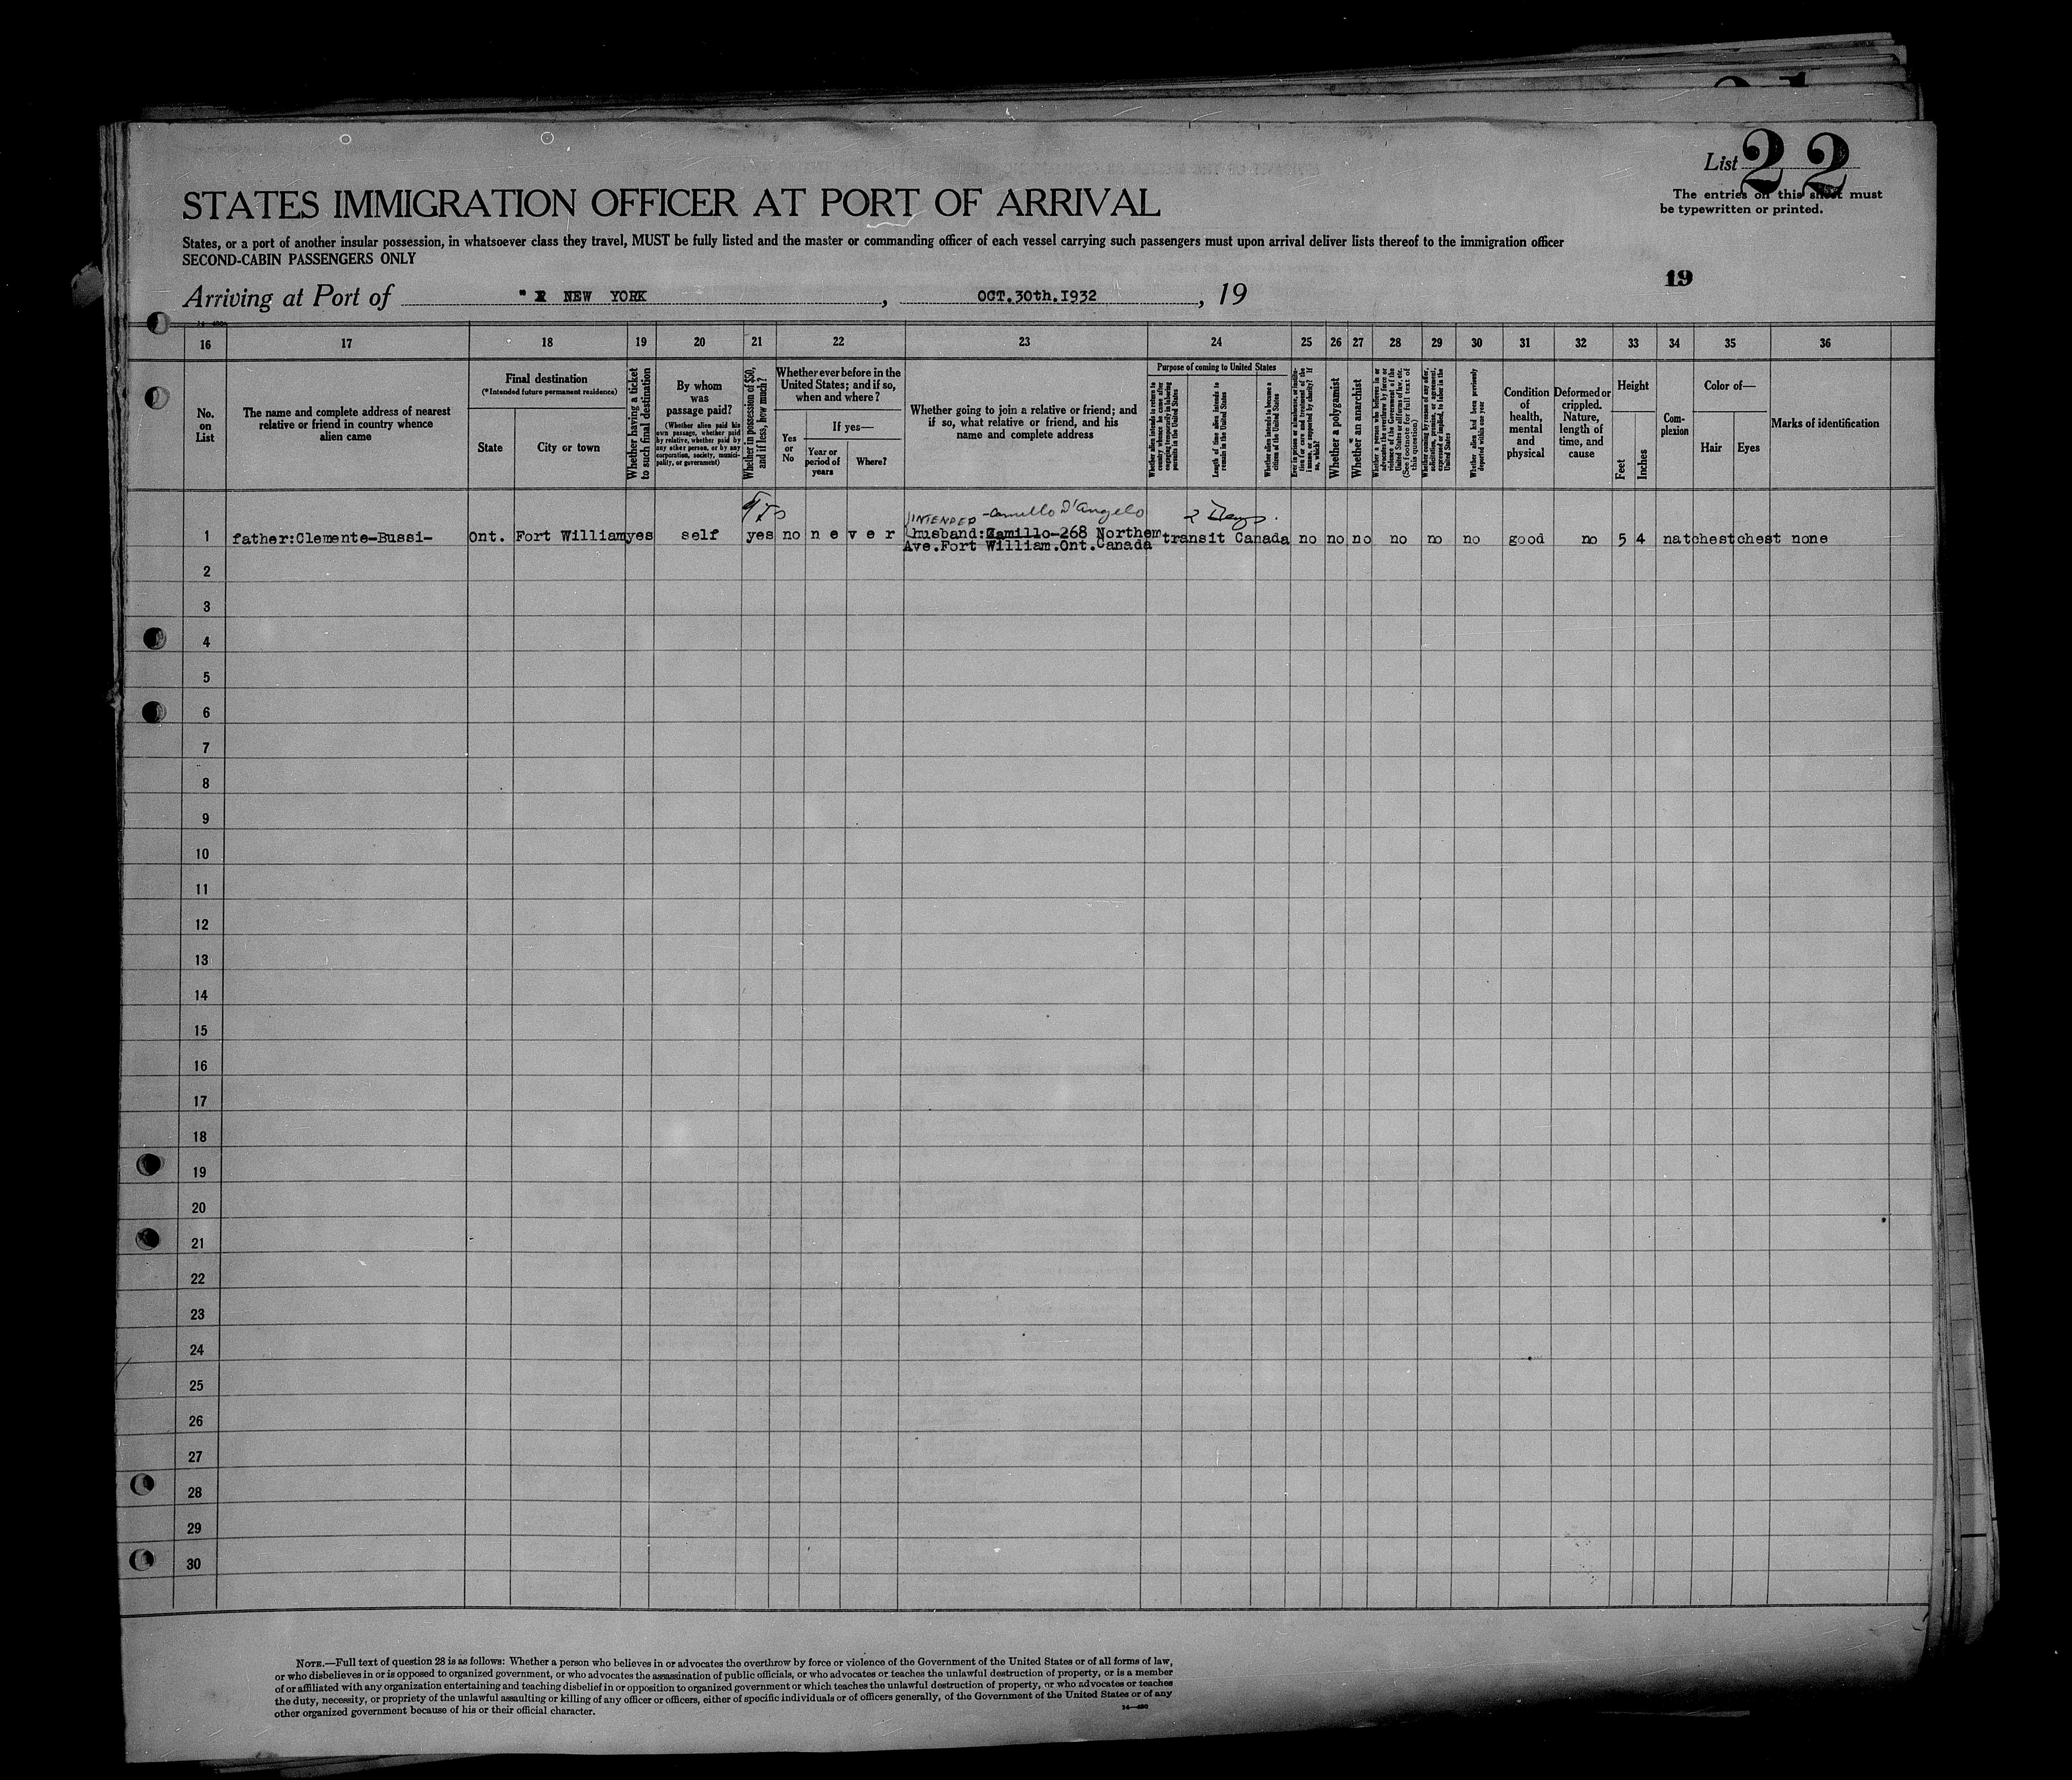 List 22
The entries on this sheet must
be typewritten or printed.
STATES IMMIGRATION OFFICER AT PORT OF ARRIVAL
States, or a port of another insular possession, in whatsoever class they travel, MUST be fully listed and the master or commanding officer of each vessel carrying such passengers must upon arrival deliver lists thereof to the immigration officer
SECOND-CABIN PASSENGERS ONLY
19
Arriving at Port of NEW YORK, OCT.30th.1932, 19
16 17 18 19 20 21 22 23 24 25 26 27 28 29 30 31 32 33 34 35 36
No.
on
List
The name and complete address of nearest
relative or friend in country whence
alien came
Final destination
(*Intended future permanent residence)
State
City or town
Whether having a ticket
to such final destination
By whom
was
passage paid?
(Whether alien paid his
own passage, whether paid
by relative, whether paid by
any other person, or by any
corporation, society, munici-
pality, or government)
Whether in possession of $50,
and if less, how much?
Whether ever before in the
United States; and if so,
when and where?
Yes
or
No
If yes—
Year or
period of
years
Where?
Whether going to join a relative or friend; and
if so, what relative or friend, and his
name and complete address
Purpose of coming to United States
Whether alien intends to return to
country whence he came after
engaging temporarily in laboring
pursuits in the United States
Length of time alien intends to
remain in the United States
Whether alien intends to become a
citizen of the United States
Ever in prison or almshouse, or institu-
tion for care and treatment of the
insane, or supported by charity? If
so, which?
Whether a polygamist
Whether an anarchist
Whether a person who believes in or
advocates the overthrow by force or
violence of the Government of the
United States or all forms of law, etc.
(See footnote for full text of
this question)
Whether coming by reason of any offer,
solicitation, promise, or agreement,
expressed or implied, to labor in the
United States
Whether alien had been previously
deported within one year
Condition
of
health,
mental
and
physical
Deformed or
crippled.
Nature,
length of
time, and
cause
Height
Feet
Inches
Com-
plexion
Color of—
Hair
Eyes
Marks of identification
INTENDED - Camillo D'Angelo
2 Days.
1 father:Clemente-Bussi- Ont. Fort William yes self yes no never husband:Camillo-268 Northern transit Canada no no no no no no good no 5 4 nat chest chest none
Ave.Fort William.Ont.Canada
2
3
4
5
6
7
8
9
10
11
12
13
14
15
16
17
18
19
20
21
22
23
24
25
26
27
28
29
30
NOTE.—Full text of question 28 is as follows: Whether a person who believes in or advocates the overthrow by force or violence of the Government of the United States or of all forms of law,
or who disbelieves in or is opposed to organized government, or who advocates the assassination of public officials, or who advocates or teaches the unlawful destruction of property, or is a member
of or affiliated with any organization entertaining and teaching disbelief in or opposition to organized government or which teaches the unlawful destruction of property, or who advocates or teaches
the duty, necessity, or propriety of the unlawful assaulting or killing of any officer or officers, either of specific individuals or of officers generally, of the Government of the United States or of any
other organized government because of his or their official character.
14—480